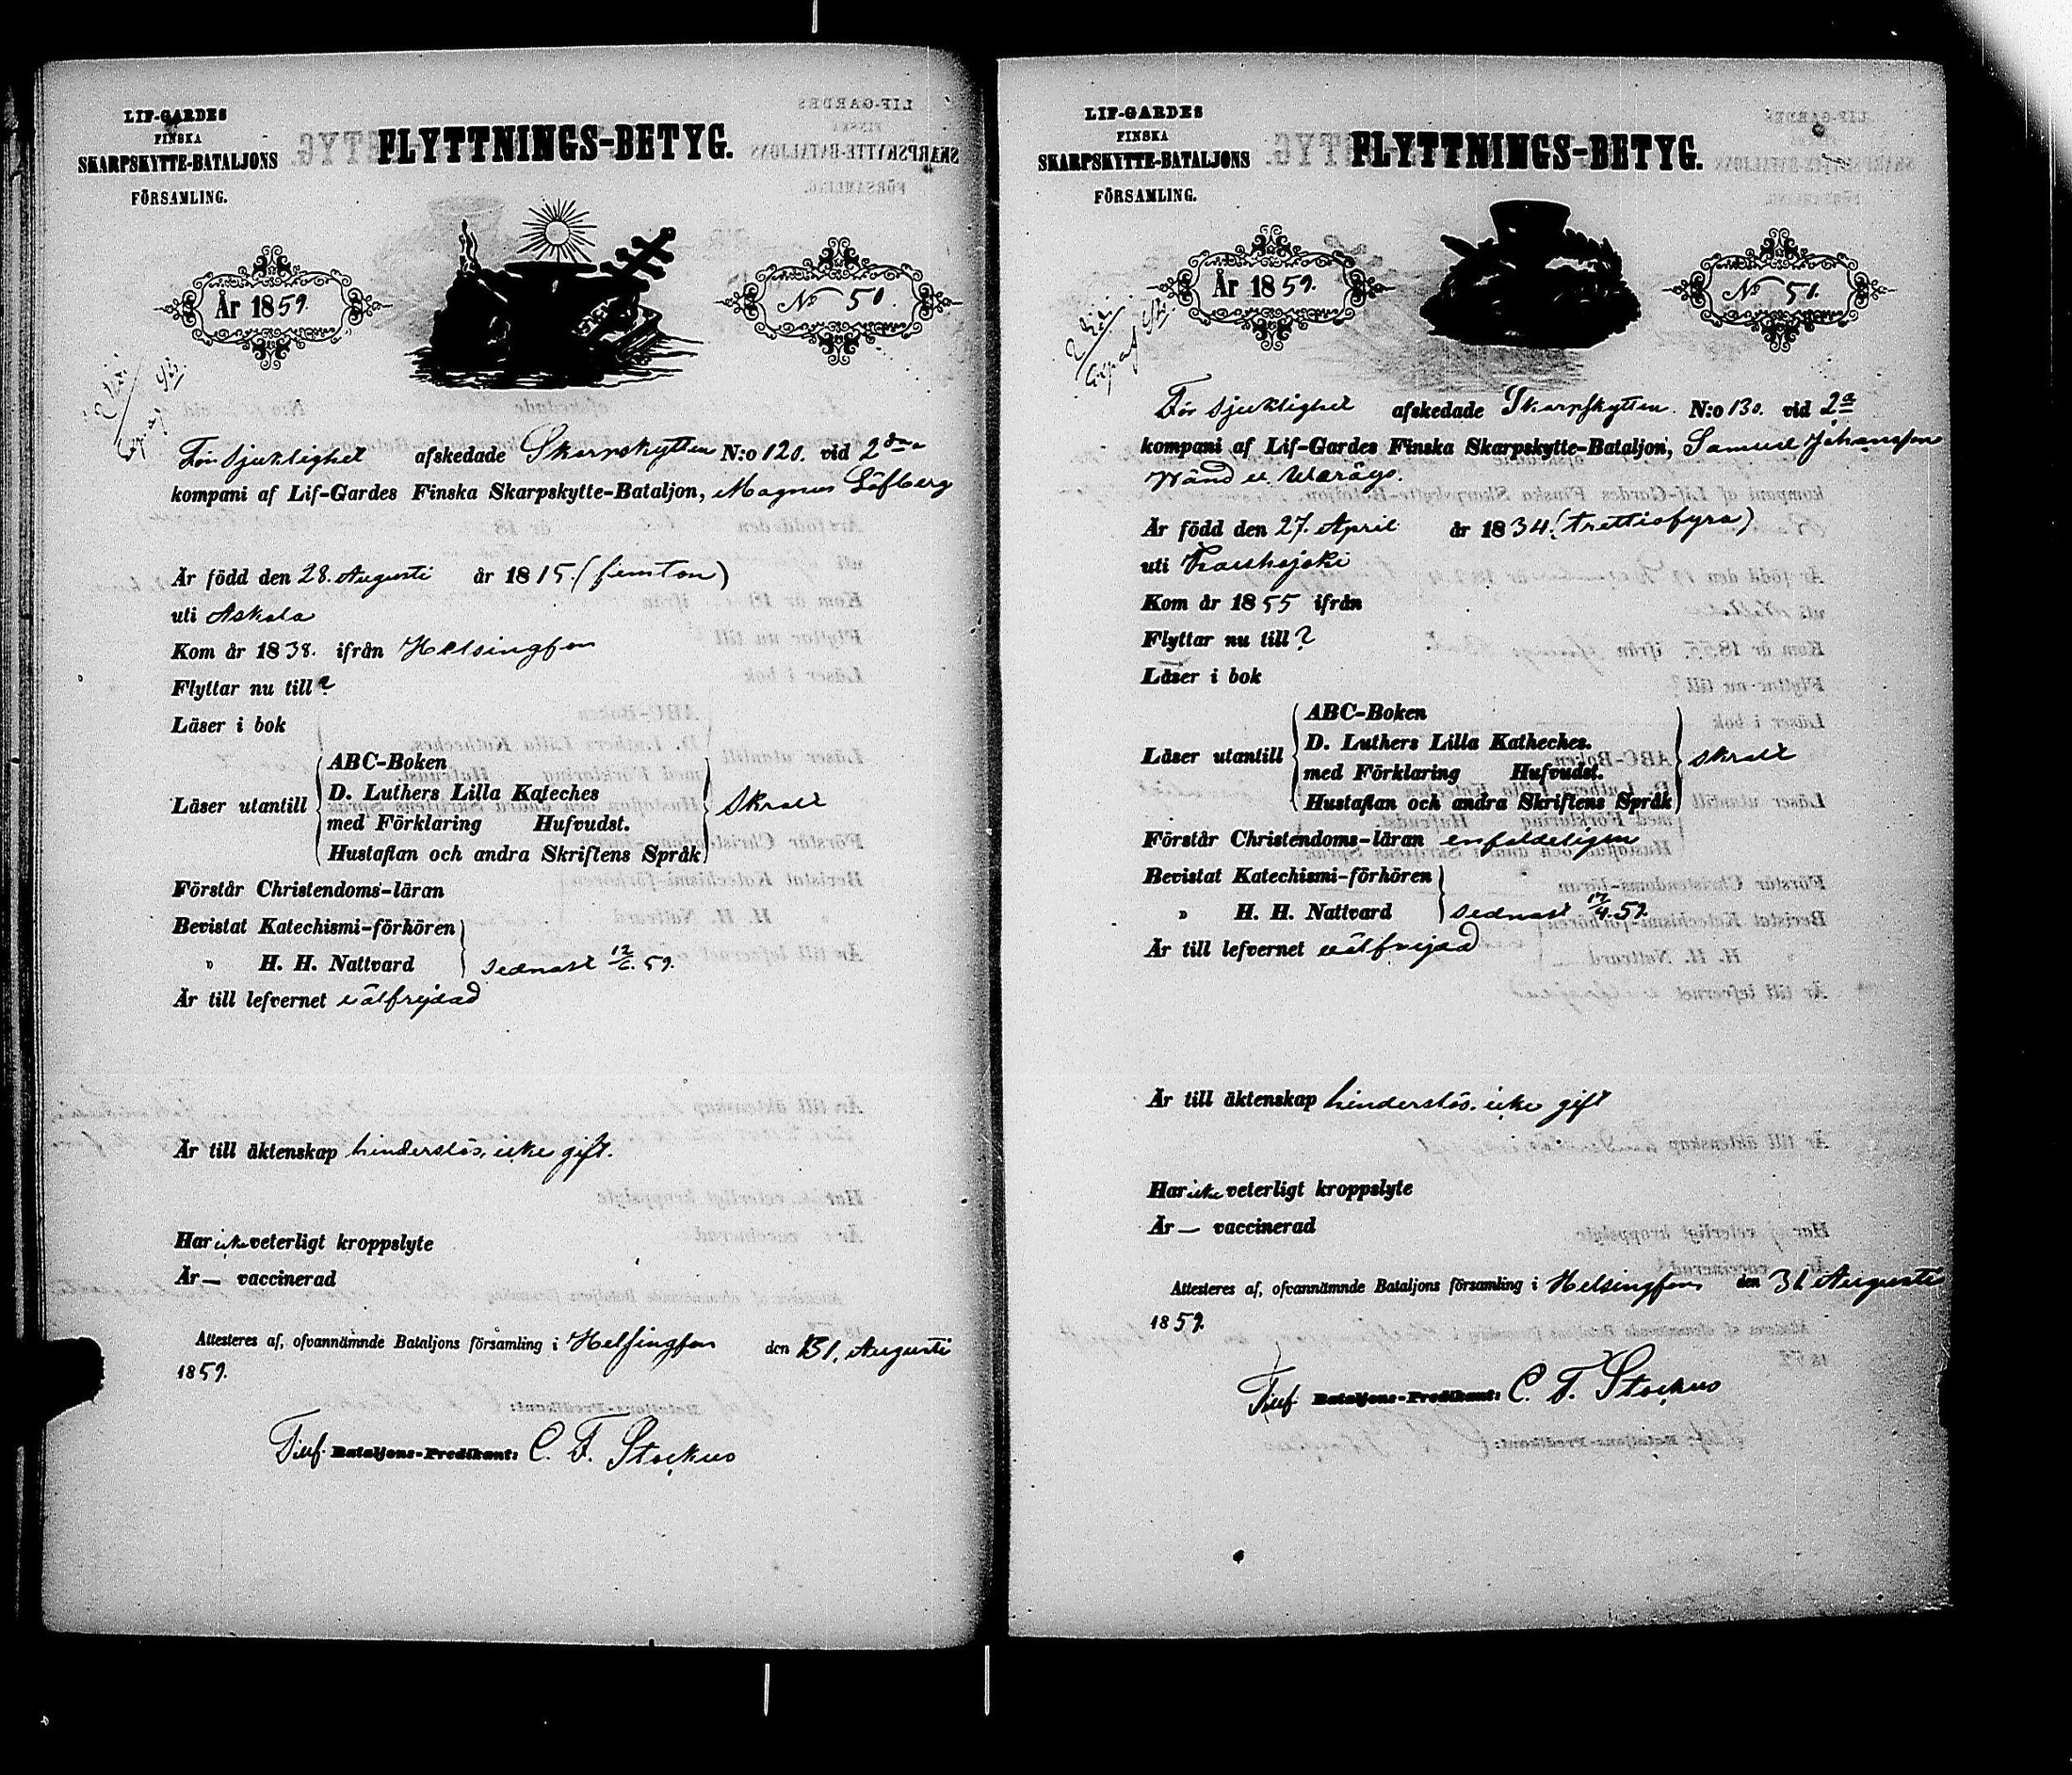 LIF-GARDES
FINSKA
SKARPSKYTTE-BATALJONS
FÖRSAMLING.
FLYTTNINGS-BETYG.
År 1859.
No 50.
För sjuklighet afskedade Skarpskytten N:o 120. vid 2dra
kompani af Lif-Gardes Finska Skarpskytte-Bataljon, Magnus Löfberg
Är född den 28. Augusti år 1815. (femton)
uti Askola
Kom år 1838. ifrån Helsingfors
Flyttar nu till ?
Läser i bok
Läser utantill
ABC-Boken
D. Luthers Lilla Kateches
med Förklaring Hufvudst.
Hustaflan och andra Skriftens Språk
Skralt
Förstår Christendoms-läran
Bevistat Katechismi-förhören
" H. H. Nattvard sednast 12/6. 59.
Är till lefvernet välfrejdad
Är till äktenskap hinderslös, icke gift.
Har icke veterligt kroppslyte
Är — vaccinerad
Attesteres af, ofvannämnde Bataljons församling i Helsingfors den 31. Augusti
1859.
Bataljons-Predikant: C. F. Stockus
LIF-GARDES
FINSKA
SKARPSKYTTE-BATALJONS
FÖRSAMLING.
FLYTTNINGS-BETYG.
År 1859.
No 51.
För sjuklighet afskedade Skarpskytten N:o 130. vid 2a
kompani af Lif-Gardes Finska Skarpskytte-Bataljon, Samuel Johansson
Är född den 27. April år 1834. (trettiofyra)
uti Kauhajoki
Kom år 1855 ifrån
Flyttar nu till ?
Läser i bok
Läser utantill
ABC-Boken
D. Luthers Lilla Katheches.
med Förklaring Hufvudst.
Hustaflan och andra Skriftens Språk
skralt
Förstår Christendoms-läran enfaldeligen
Bevistat Katechismi-förhören
" H. H. Nattvard sednast 12/4. 59.
Är till lefvernet välfrejdad
Är till äktenskap hinderslös. icke gift
Har icke veterligt kroppslyte
Är — vaccinerad
Attesteres af, ofvannämnde Bataljons församling i Helsingfors den 31 Augusti
1859.
Bataljons-Predikant: C. F. Stockus